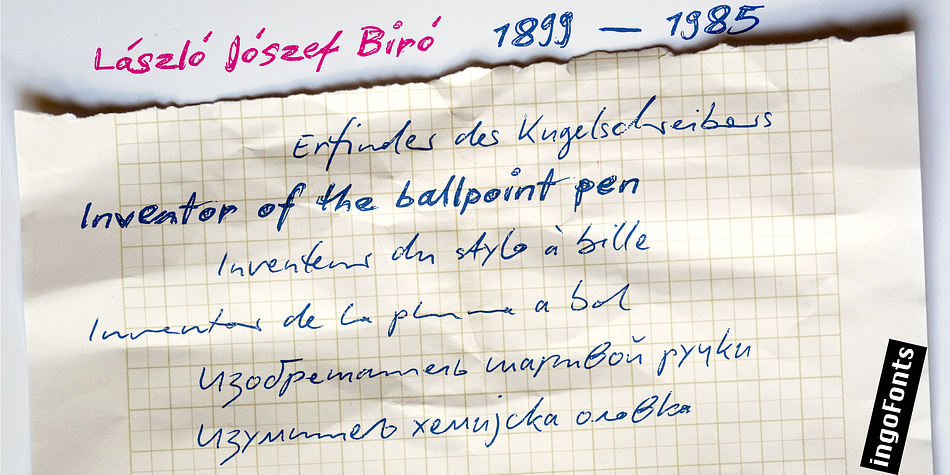 László József Bíró 1899 — 1985
Erfinder des Kugelschreibers
Inventor of the ballpoint pen
Inventeur du stylo à bille
Inventor de la pluma a bol
Изобретатель шартвой ручки
Изумитељ хемијска оловка
ingoFonts